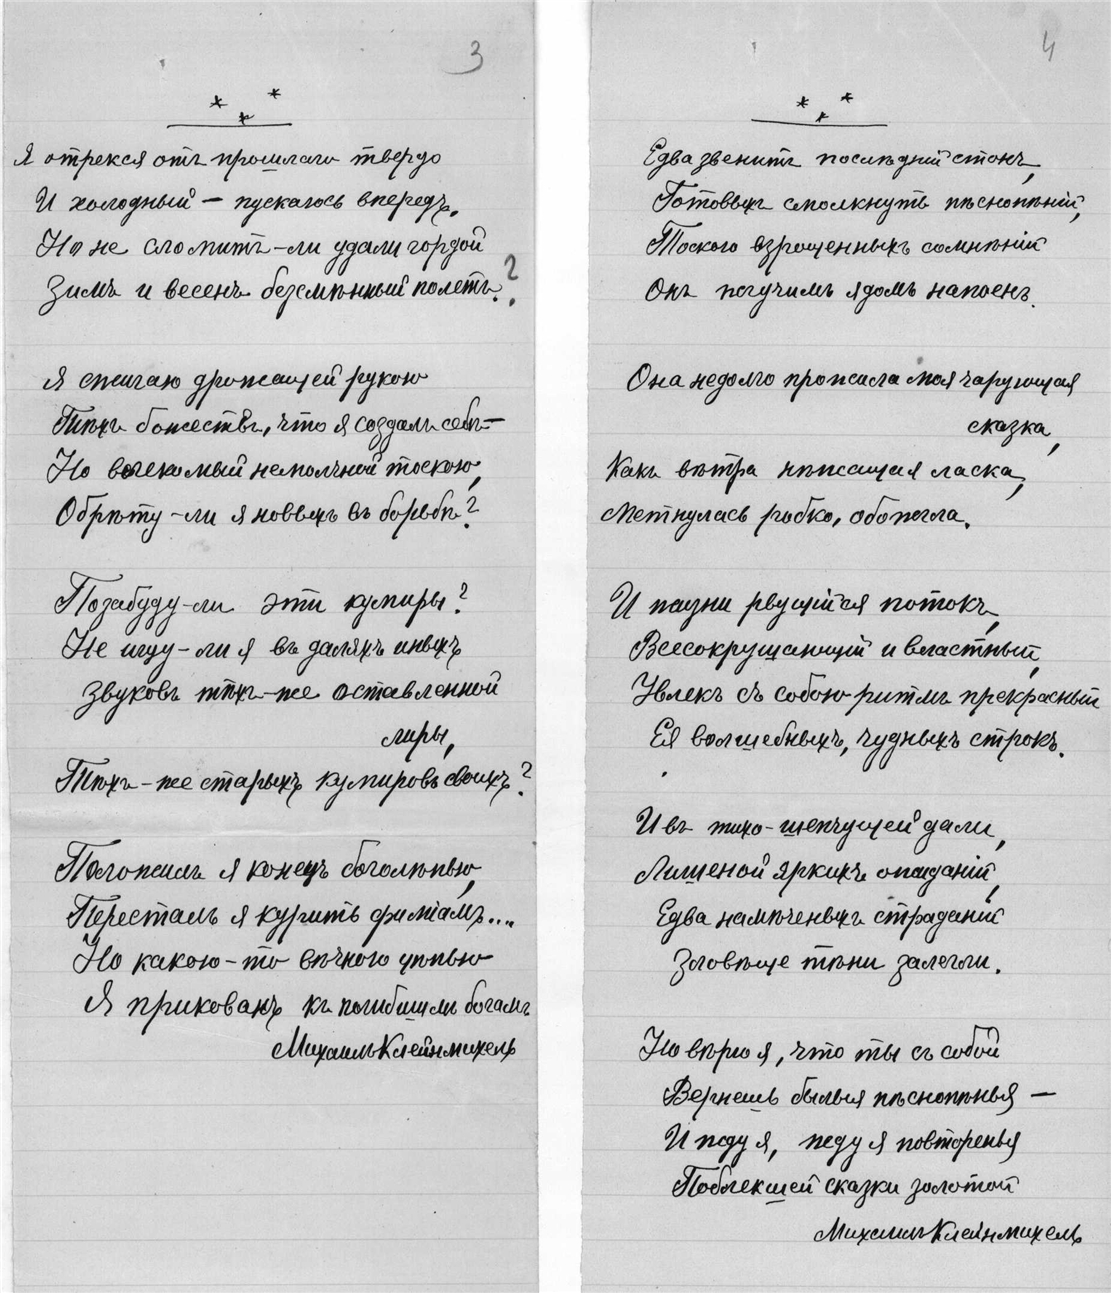 3
* * *
Я отрекся отъ прошлаго твердо
И холодный — пускаюсь впередъ,
Но не сломитъ-ли удали гордой
Зимъ и весенъ безсмѣнный полетъ?
Я сжигаю дрожащей рукою
Тѣхъ божествъ, что я создалъ себѣ —
Но влекомый немолчной тоскою,
Обрѣту-ли я новыхъ въ борьбѣ?
Позабуду-ли эти кумиры?
Не ищу-ли я въ даляхъ иныхъ
Звуковъ тѣхъ-же оставленной
лиры,
Тѣхъ-же старыхъ кумировъ своихъ?
Положилъ я конецъ боголюбью,
Пересталъ я курить фиміамъ....
Но какою-то вѣчною цѣпью
Я прикованъ къ погибшимъ богамъ
Михаилъ Клейнмихель
4
* * *
Едва звенитъ послѣдній стонъ,
Готовыхъ смолкнуть пѣснопѣній,
Тоскою взрощенныхъ сомнѣній
Онъ жгучимъ ядомъ напоенъ.
Она недолго прожила моя чарующая
сказка,
Какъ вѣтра нѣжащая ласка,
Метнулась робко, обожгла.
И жизни рвущійся потокъ,
Всесокрушающій и властный,
Увлекъ съ собою ритмъ прекрасный
Ея волшебныхъ, чудныхъ строкъ.
И въ тихо-шепчущей дали,
Лишеной яркихъ ожиданій,
Едва намѣченныхъ страданій
Зловѣще тѣни залегли.
Но вѣрю я, что ты съ собой
Вернешь былыя пѣснопѣнья —
И жду я, жду я повторенья
Поблекшей сказки золотой
Михаилъ Клейнмихель